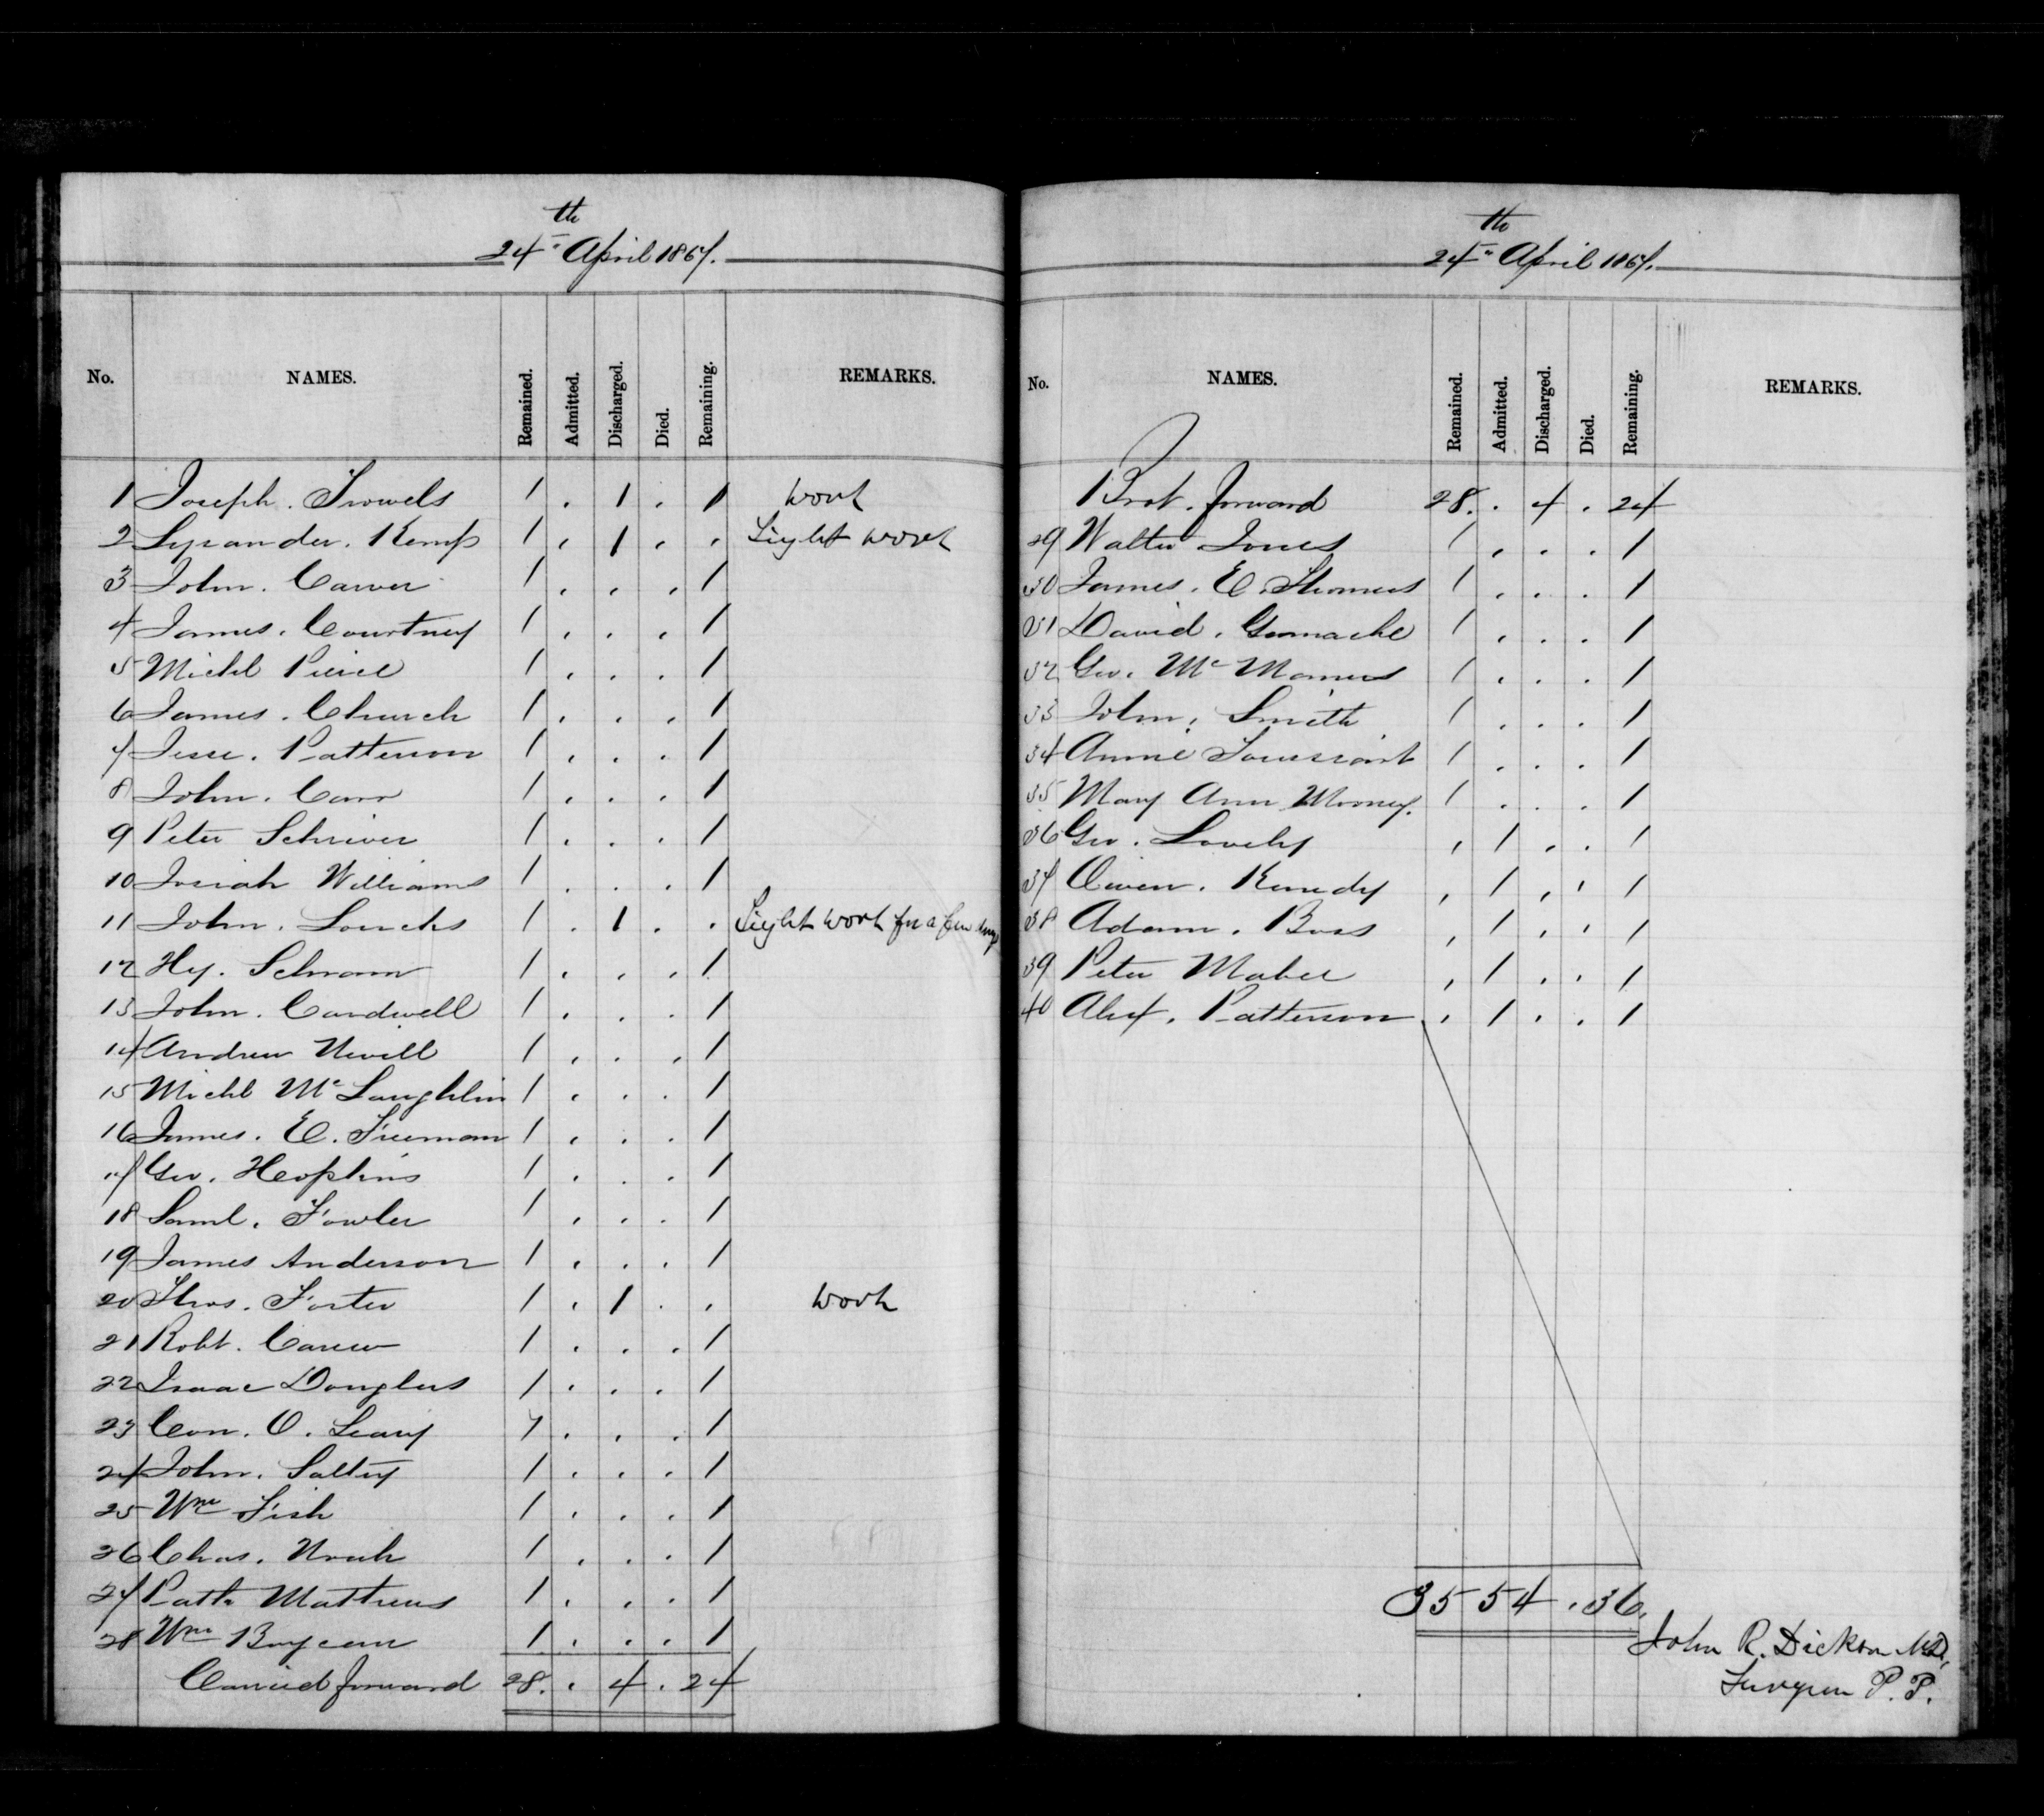 24th April 1867.
No. NAMES. Remained. Admitted. Discharged. Died. Remaining. REMARKS.
1 Joseph. Trowels 1 . 1 . 1 work
2 Lysander. Kemp 1 . 1 . . Light work
3 John. Carver 1 . . . 1
4 James. Courtney 1 . . . 1
5 Michl Pierce 1 . . . 1
6 James. Church 1 . . . 1
7 Jesse. Patterson 1 . . . 1
8 John. Carr 1 . . . 1
9 Peter Schriver 1 . . . 1
10 Josiah Williams 1 . . . 1
11 John. Loucks 1 . 1 . . Light work for a few days
12 Hy. Schram 1 . . . 1
13 John. Cardwell 1 . . . 1
14 Andrew Nevill 1 . . . 1
15 Michl Mc Laughlin 1 . . . 1
16 James. E. Freeman 1 . . . 1
17 Geo. Hopkins 1 . . . 1
18 Saml. Fowler 1 . . . 1
19 James Anderson 1 . . . 1
20 Thos. Foster 1 . 1 . . work
21 Robt. Carew 1 . . . 1
22 Isaac Douglas 1 . . . 1
23 Con. O. Leary 1 . . . 1
24 John. Saltry 1 . . . 1
25 Wm Fish 1 . . . 1
26 Chas. 1 . . . 1
27 Patk Mathews 1 . . . 1
28 Wm 1 . . . 1
Carried forward 28. . 4 . 24
24th April 1867.
No. NAMES. Remained. Admitted. Discharged. Died. Remaining. REMARKS.
Brot. forward 28. . 4 . 24
29 Walter Jones 1 . . . 1
30 James. E. Thomas 1 . . . 1
31 David. Gamache 1 . . . 1
32 Geo. Mc Manus 1 . . . 1
33 John. Smith 1 . . . 1
34 Annie Toussaint 1 . . . 1
35 Mary Ann Mooney. 1 . . . 1
36 Geo. Lovely . 1 . . 1
37 Owen. Kenedy . 1 . . 1
38 Adam. Bass . 1 . . 1
39 Peter Maher . 1 . . 1
40 Alex. Patterson . 1 . . 1
35 5 4 . 36.
John R. Dickson M.D.,
Surgeon P. P.